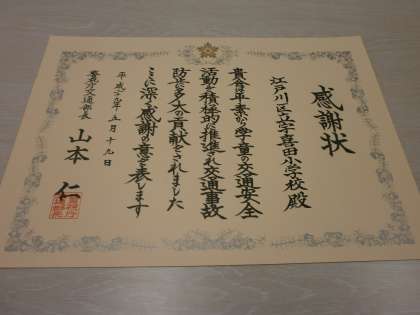 感謝状
江戸川区立宇喜田小学校殿
貴会は平素から学童の交通安全
活動を積極的に推進され交通事故
防止に多大の貢献をされました
ここに深く感謝の意を表します
五月十九日
警視庁交通部長 山本 仁